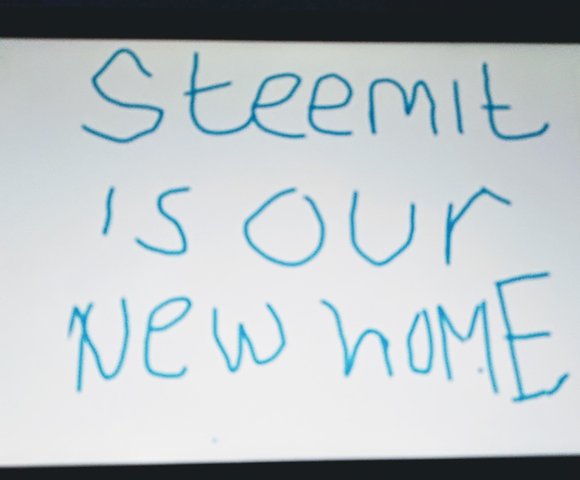 Steemit
is our
New hOME